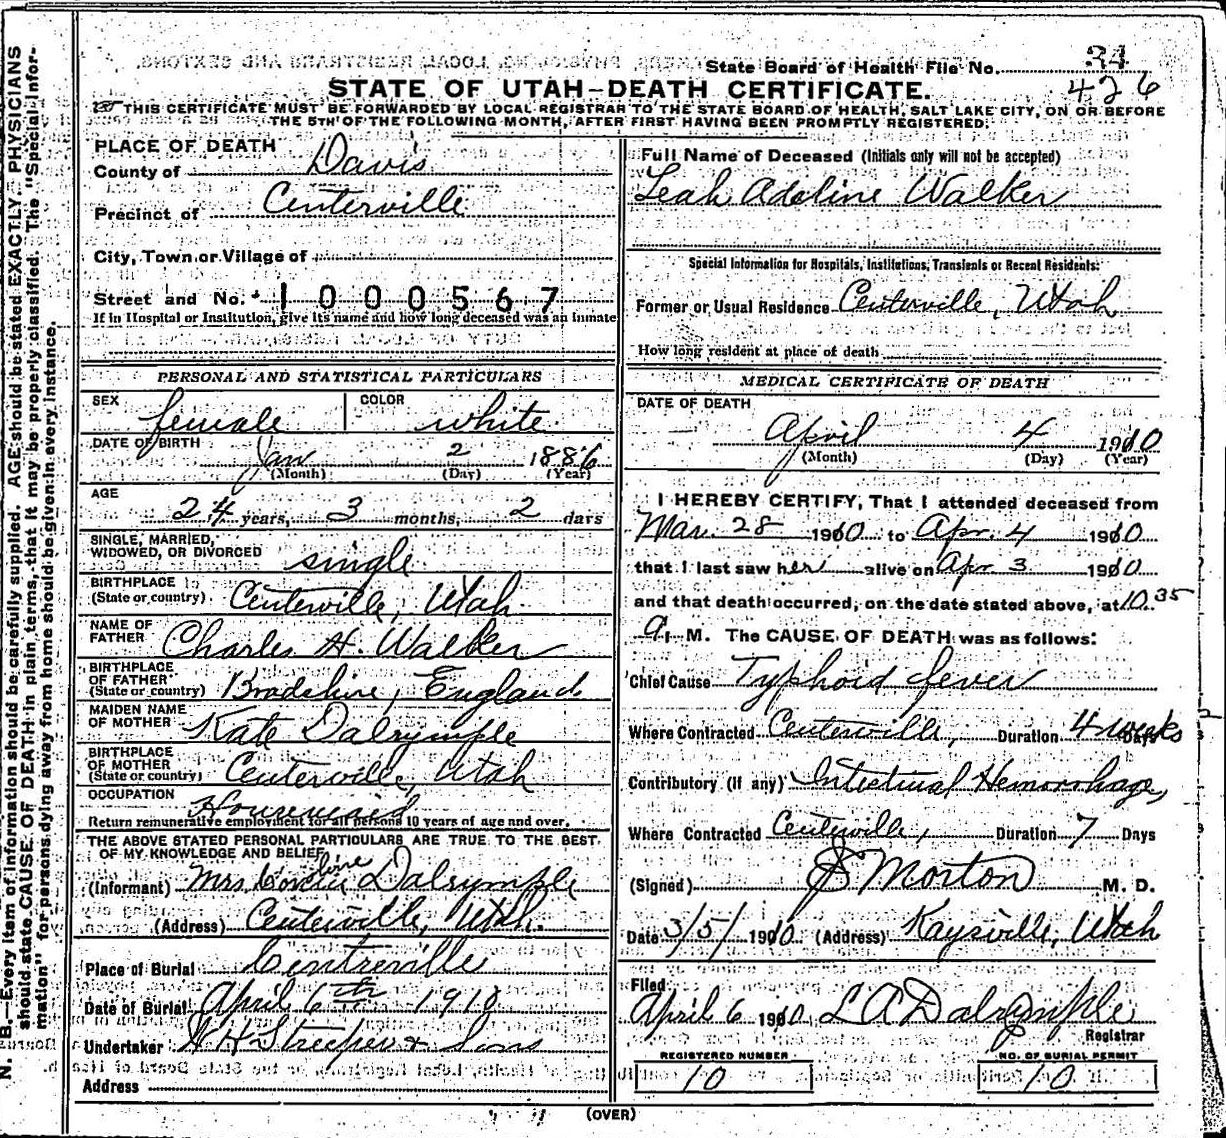 State Board of Health File No. 34
426
STATE OF UTAH—DEATH CERTIFICATE.
THIS CERTIFICATE MUST BE FORWARDED BY LOCAL REGISTRAR TO THE STATE BOARD OF HEALTH, SALT LAKE CITY, ON OR BEFORE
THE 5TH OF THE FOLLOWING MONTH, AFTER FIRST HAVING BEEN PROMPTLY REGISTERED.
PLACE OF DEATH
County of Davis
Precinct of Centerville
City, Town or Village of
Street and No. 1000567
If in Hospital or Institution, give its name and how long deceased was an inmate
PERSONAL AND STATISTICAL PARTICULARS
SEX female COLOR white
DATE OF BIRTH Jan 2 1886
(Month) (Day) (Year)
AGE
24 years, 3 months, 2 days
SINGLE, MARRIED,
WIDOWED, OR DIVORCED single
BIRTHPLACE
(State or country) Centerville, Utah
NAME OF
FATHER Charles H. Walker
BIRTHPLACE
OF FATHER
(State or country) England
MAIDEN NAME
OF MOTHER Kate Dalrymple
BIRTHPLACE
OF MOTHER
(State or country) Centerville, Utah
OCCUPATION Housemaid
Return remunerative employment for all persons 10 years of age and over.
THE ABOVE STATED PERSONAL PARTICULARS ARE TRUE TO THE BEST
OF MY KNOWLEDGE AND BELIEF
(Informant) Mrs. Dalrymple
(Address) Centerville, Utah.
Place of Burial Centreville
Date of Burial April 6th 1910
Undertaker Streeper & Sons
Address
Full Name of Deceased (Initials only will not be accepted)
Leah Adeline Walker
Special Information for Hospitals, Institutions, Transients or Recent Residents:
Former or Usual Residence Centerville, Utah
How long resident at place of death
MEDICAL CERTIFICATE OF DEATH
DATE OF DEATH
April 4 1910
(Month) (Day) (Year)
I HEREBY CERTIFY, That I attended deceased from
Mar. 28 1910 to Apr. 4 1910
that I last saw her alive on Apr 3 1910
and that death occurred, on the date stated above, at 10.35
a. M. The CAUSE OF DEATH was as follows:
Chief Cause Typhoid fever
Where Contracted Centerville, Duration 4 weeks Days
Contributory (if any) Intestinal Hemorrhage,
Where Contracted Centerville, Duration 7 Days
(Signed) Morton M. D.
Date 3/5/ 1910 (Address) Kaysville, Utah
Filed
April 6 1910 L A Dalrymple
Registrar
REGISTERED NUMBER
10
NO. OF BURIAL PERMIT
10
(OVER)
N. B.—Every item of information should be carefully supplied. AGE should be stated EXACTLY. PHYSICIANS
should state CAUSE OF DEATH in plain terms, that it may be properly classified. The "Special Infor-
mation" for persons dying away from home should be given in every instance.